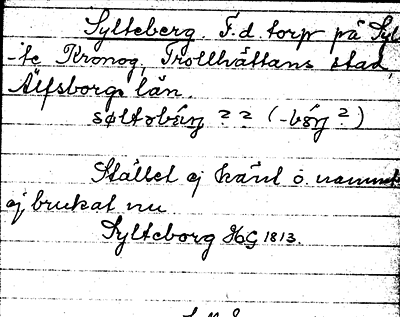 Sylteberg. F.d. torp på Syl-
te Kronog, Trollhättans stad,
Älfsborgs län.
səltəbærj ? ? (-børj ?)
Stället ej känt o. namnet
ej brukat nu
Sylteborg HG 1813.